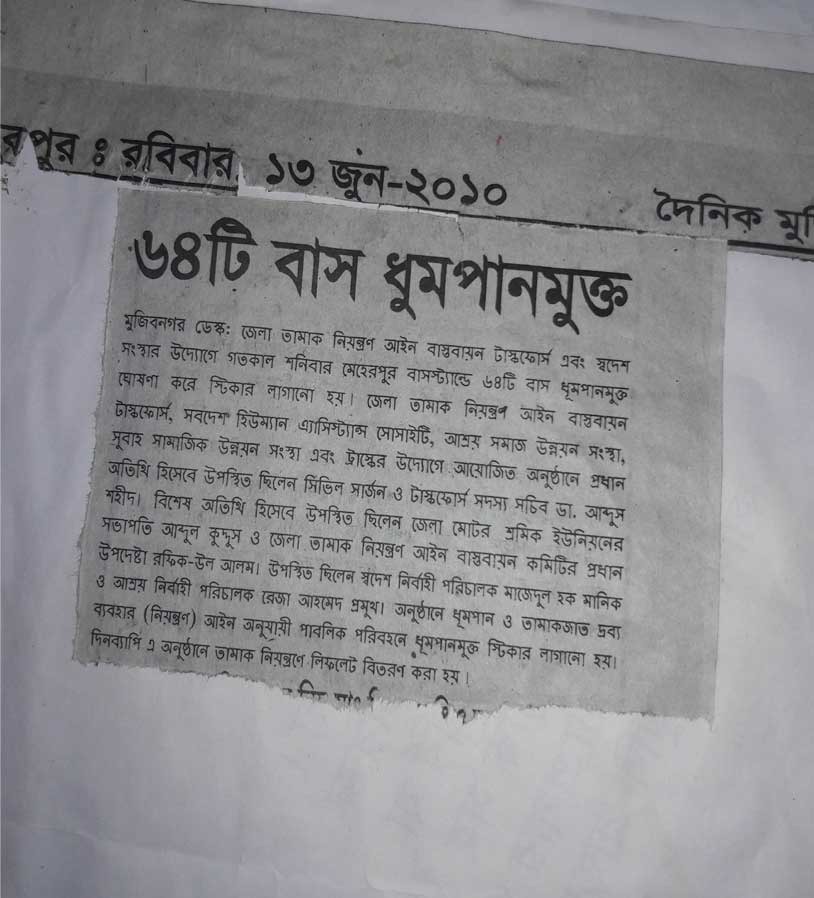 রপুর ঃ রবিবার, ১৩ জুন-২০১০
দৈনিক মু
৬৪টি বাস ধুমপানমুক্ত
মুজিবনগর ডেস্ক: জেলা তামাক নিয়ন্ত্রণ আইন বাস্তবায়ন টাস্কফোর্স এবং স্বদেশ
সংস্থার উদ্যোগে গতকাল শনিবার মেহেরপুর বাসস্ট্যান্ডে ৬৪টি বাস ধূমপানমুক্ত
ঘোষণা করে স্টিকার লাগানো হয়। জেলা তামাক নিয়ন্ত্রণ আইন বাস্তবায়ন
টাস্কফোর্স, সবদেশ হিউম্যান এ্যাসিস্ট্যান্স সোসাইটি, আশ্রয় সমাজ উন্নয়ন সংস্থা,
সুবাহ সামাজিক উন্নয়ন সংস্থা এবং ট্রাস্কের উদ্যোগে আয়োজিত অনুষ্ঠানে প্রধান
অতিথি হিসেবে উপস্থিত ছিলেন সিভিল সার্জন ও টাস্কফোর্স সদস্য সচিব ডা. আব্দুস
শহীদ। বিশেষ অতিথি হিসেবে উপস্থিত ছিলেন জেলা মোটর শ্রমিক ইউনিয়নের
সভাপতি আব্দুল কুদ্দুস ও জেলা তামাক নিয়ন্ত্রণ আইন বাস্তবায়ন কমিটির প্রধান
উপদেষ্টা রফিক-উল আলম। উপস্থিত ছিলেন স্বদেশ নির্বাহী পরিচালক মাজেদুল হক মানিক
ও আশ্রয় নির্বাহী পরিচালক রেজা আহমেদ প্রমূখ। অনুষ্ঠানে ধূমপান ও তামাকজাত দ্রব্য
ব্যবহার (নিয়ন্ত্রণ) আইন অনুযায়ী পাবলিক পরিবহনে ধূমপানমুক্ত স্টিকার লাগানো হয়।
দিনব্যাপি এ অনুষ্ঠানে তামাক নিয়ন্ত্রণে লিফলেট বিতরণ করা হয়।